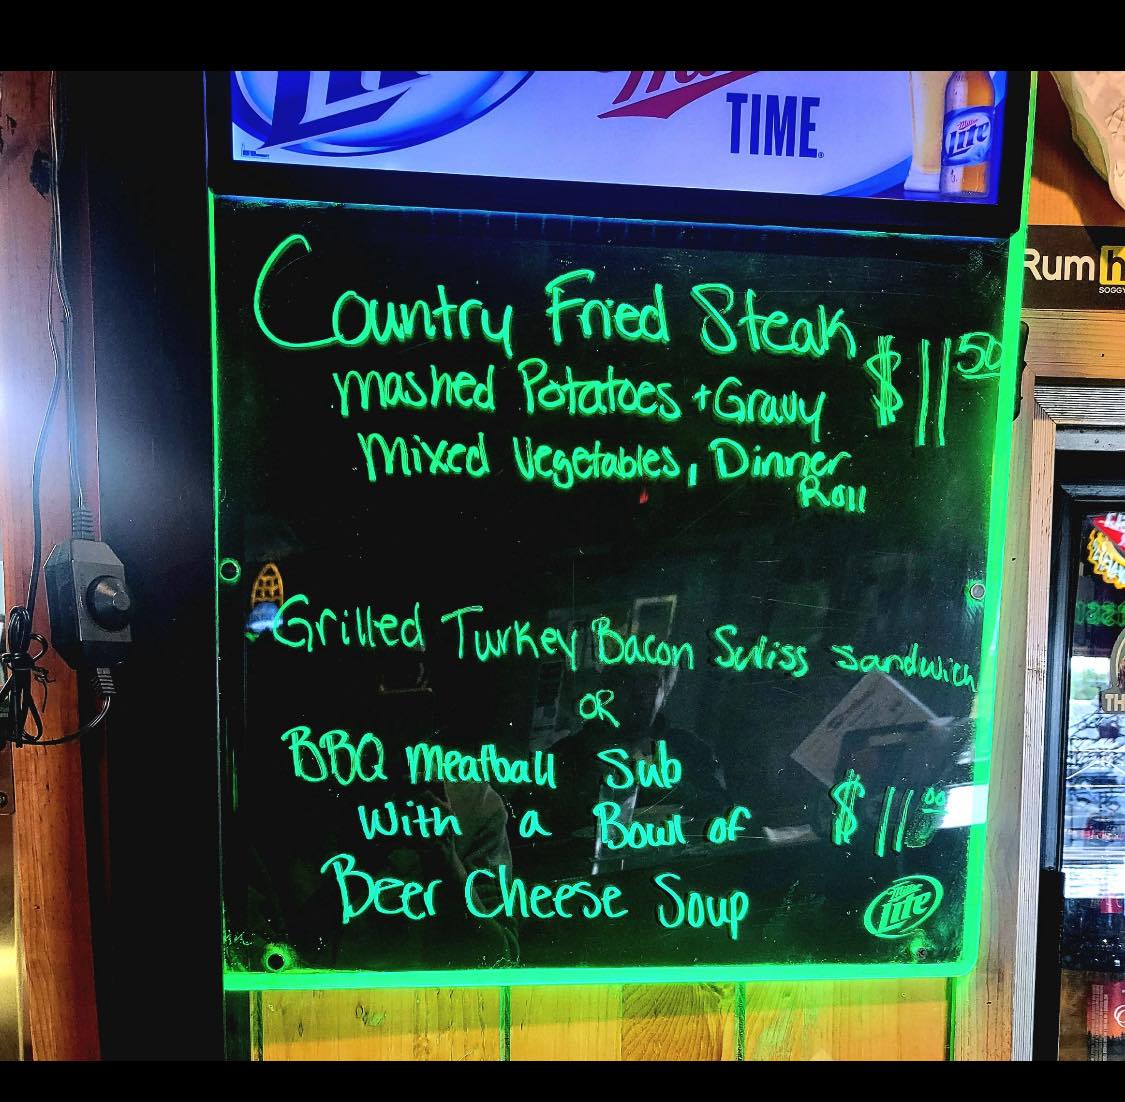 Lite
TIME
Miller
Lite
Rum
SOGGY
Country Fried Steak
Mashed Potatoes + Gravy $11 50
Mixed Vegetables, Dinner
Roll
Grilled Turkey Bacon Swiss Sandwich
OR
BBQ Meatball Sub
With a Bowl of $11 00
Beer Cheese Soup
Miller
Lite
TH